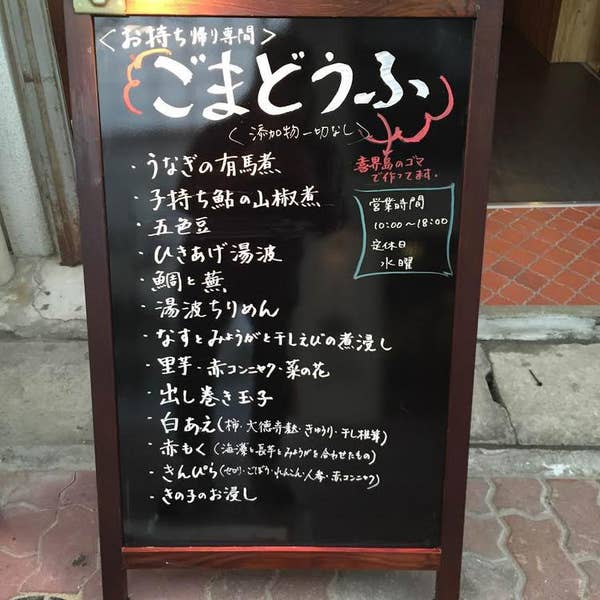 ＜お持ち帰り専門＞
ごまどうふ
＜添加物一切なし＞
喜界島のゴマ
で作ってます。
営業時間
10:00〜18:00
定休日
水曜
・うなぎの有馬煮
・子持ち鮎の山椒煮
・五色豆
・ひきあげ湯波
・鯛と蕪
・湯波ちりめん
・なすとみょうがと干しえびの煮浸し
・里芋・赤コンニャク・菜の花
・出し巻き玉子
・白あえ(柿・大徳寺麩・きゅうり・干し椎茸)
・赤もく(海藻と長芋とみょうがを合わせたもの)
・きんぴら(セロリ・ごぼう・れんこん・人参・赤コンニャク)
・きの子のお浸し